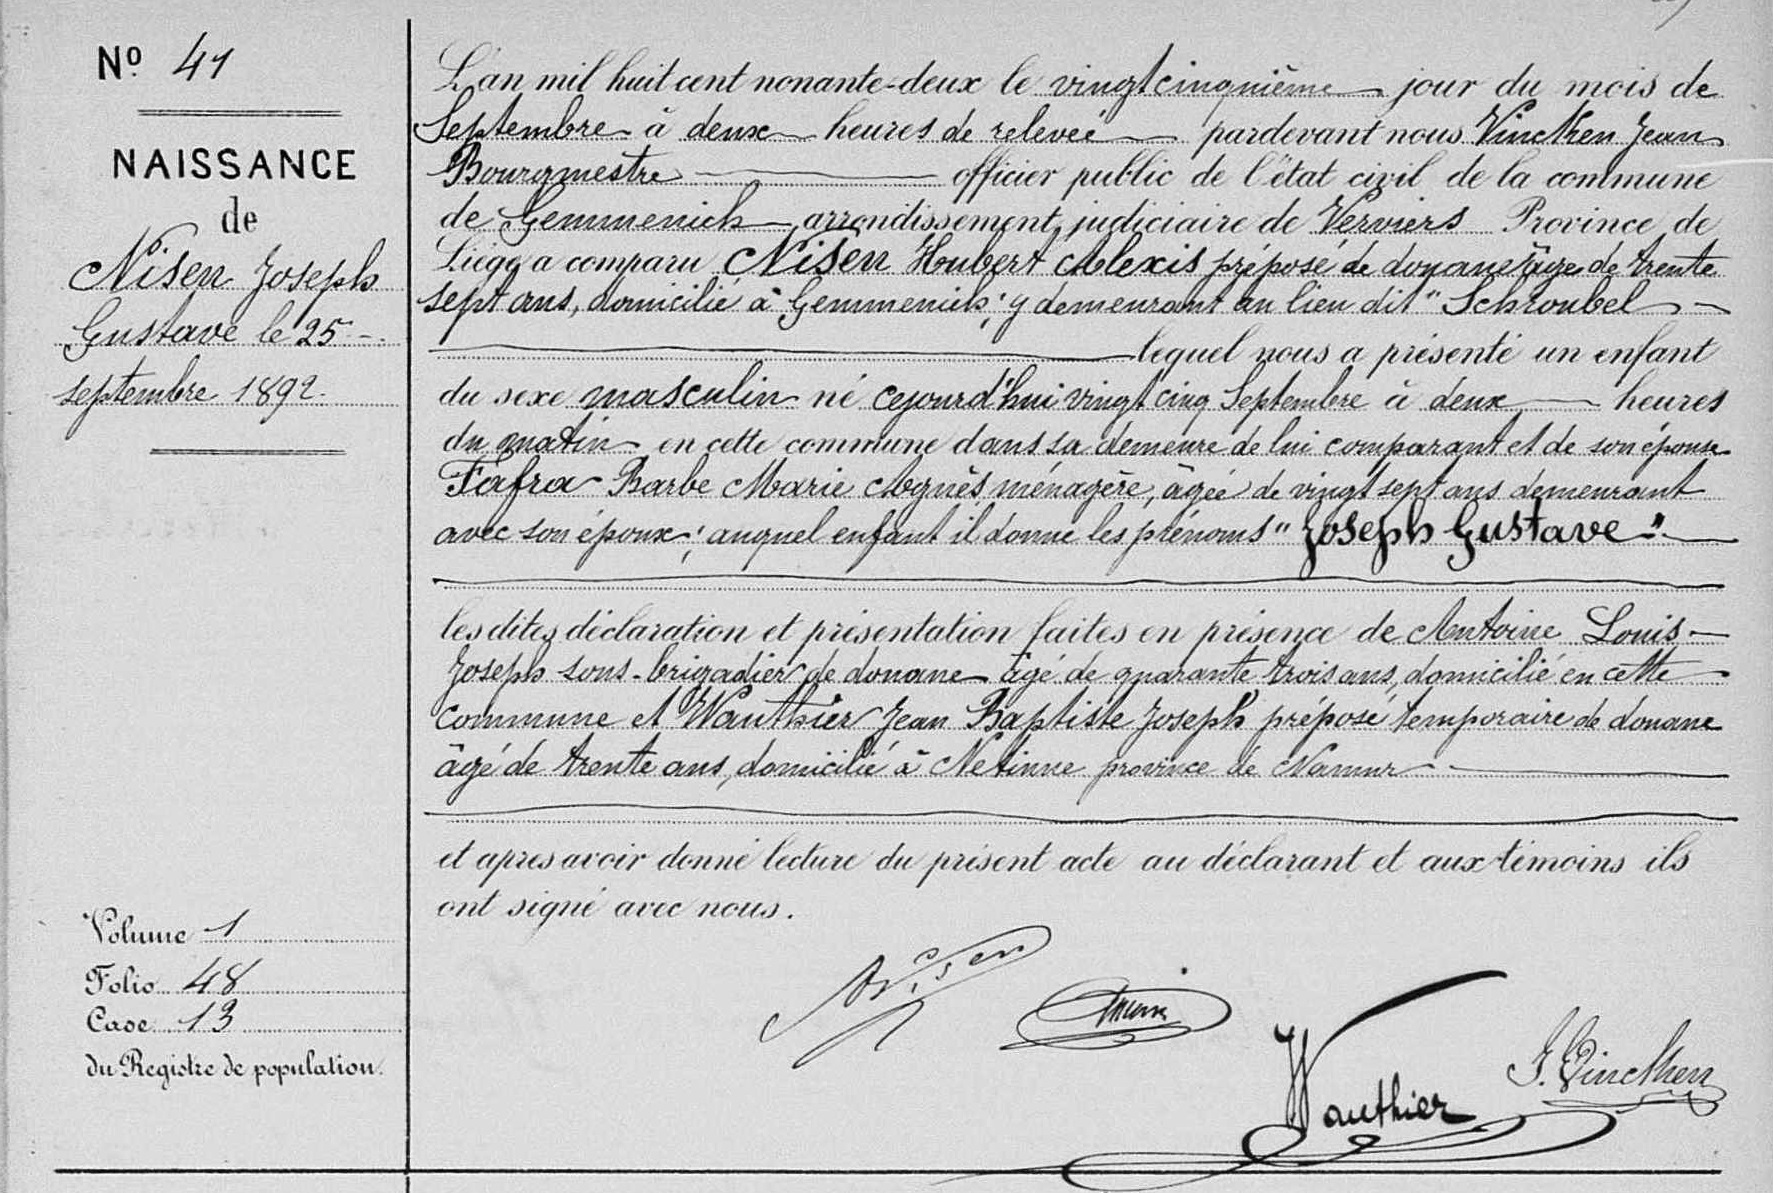 Nº 41
NAISSANCE
de
Nisen Joseph
Gustave le 25
septembre 1892.
Volume 1
Folio 48
Case 13
du Registre de population.
L'an mil huit cent nonante-deux le vingtcinquième jour du mois de
Septembre à deux heures de relevée pardevant nous Vincken Jean
Bourgmestre officier public de l'état civil de la commune
de Gemmenich arrondissement judiciaire de Verviers Province de
Liége a comparu Nisen Hubert Alexis préposé de douane âgé de trente
sept ans, domicilié à Gemmenich; y demeurant au lieu dit "Schroubel
lequel nous a présenté un enfant
du sexe masculin né cejourd'hui vingt cinq Septembre à deux heures
du matin en cette commune dans sa demeure de lui comparant et de son épouse
Fafra Barbe Marie Agnès ménagère, âgée de vingt sept ans demeurant
avec son époux; auquel enfant il donne les prénoms "Joseph Gustave"
les dites déclaration et présentation faites en présence de Antoine Louis
Joseph sous-brigadier de douane âgé de quarante trois ans, domicilié en cette
commune et Wauthier Jean Baptiste Joseph préposé temporaire de douane
âgé de trente ans, domicilié à Netinne province de Namur
et apres avoir donné lecture du présent acte au déclarant et aux témoins ils
ont signé avec nous.
Nisen
Wauthier
J. Vincken